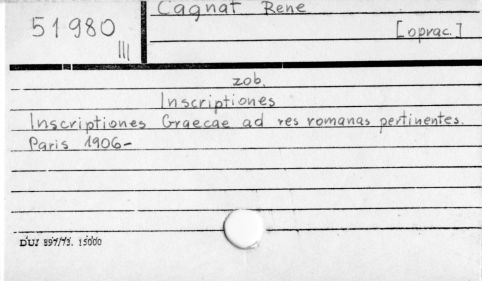 51980
III
Cagnat Rene
[oprac.]
zob.
Inscriptiones
Inscriptiones Graecae ad res romanas pertinentes.
Paris 1906-
DUJ 897/73. 15000